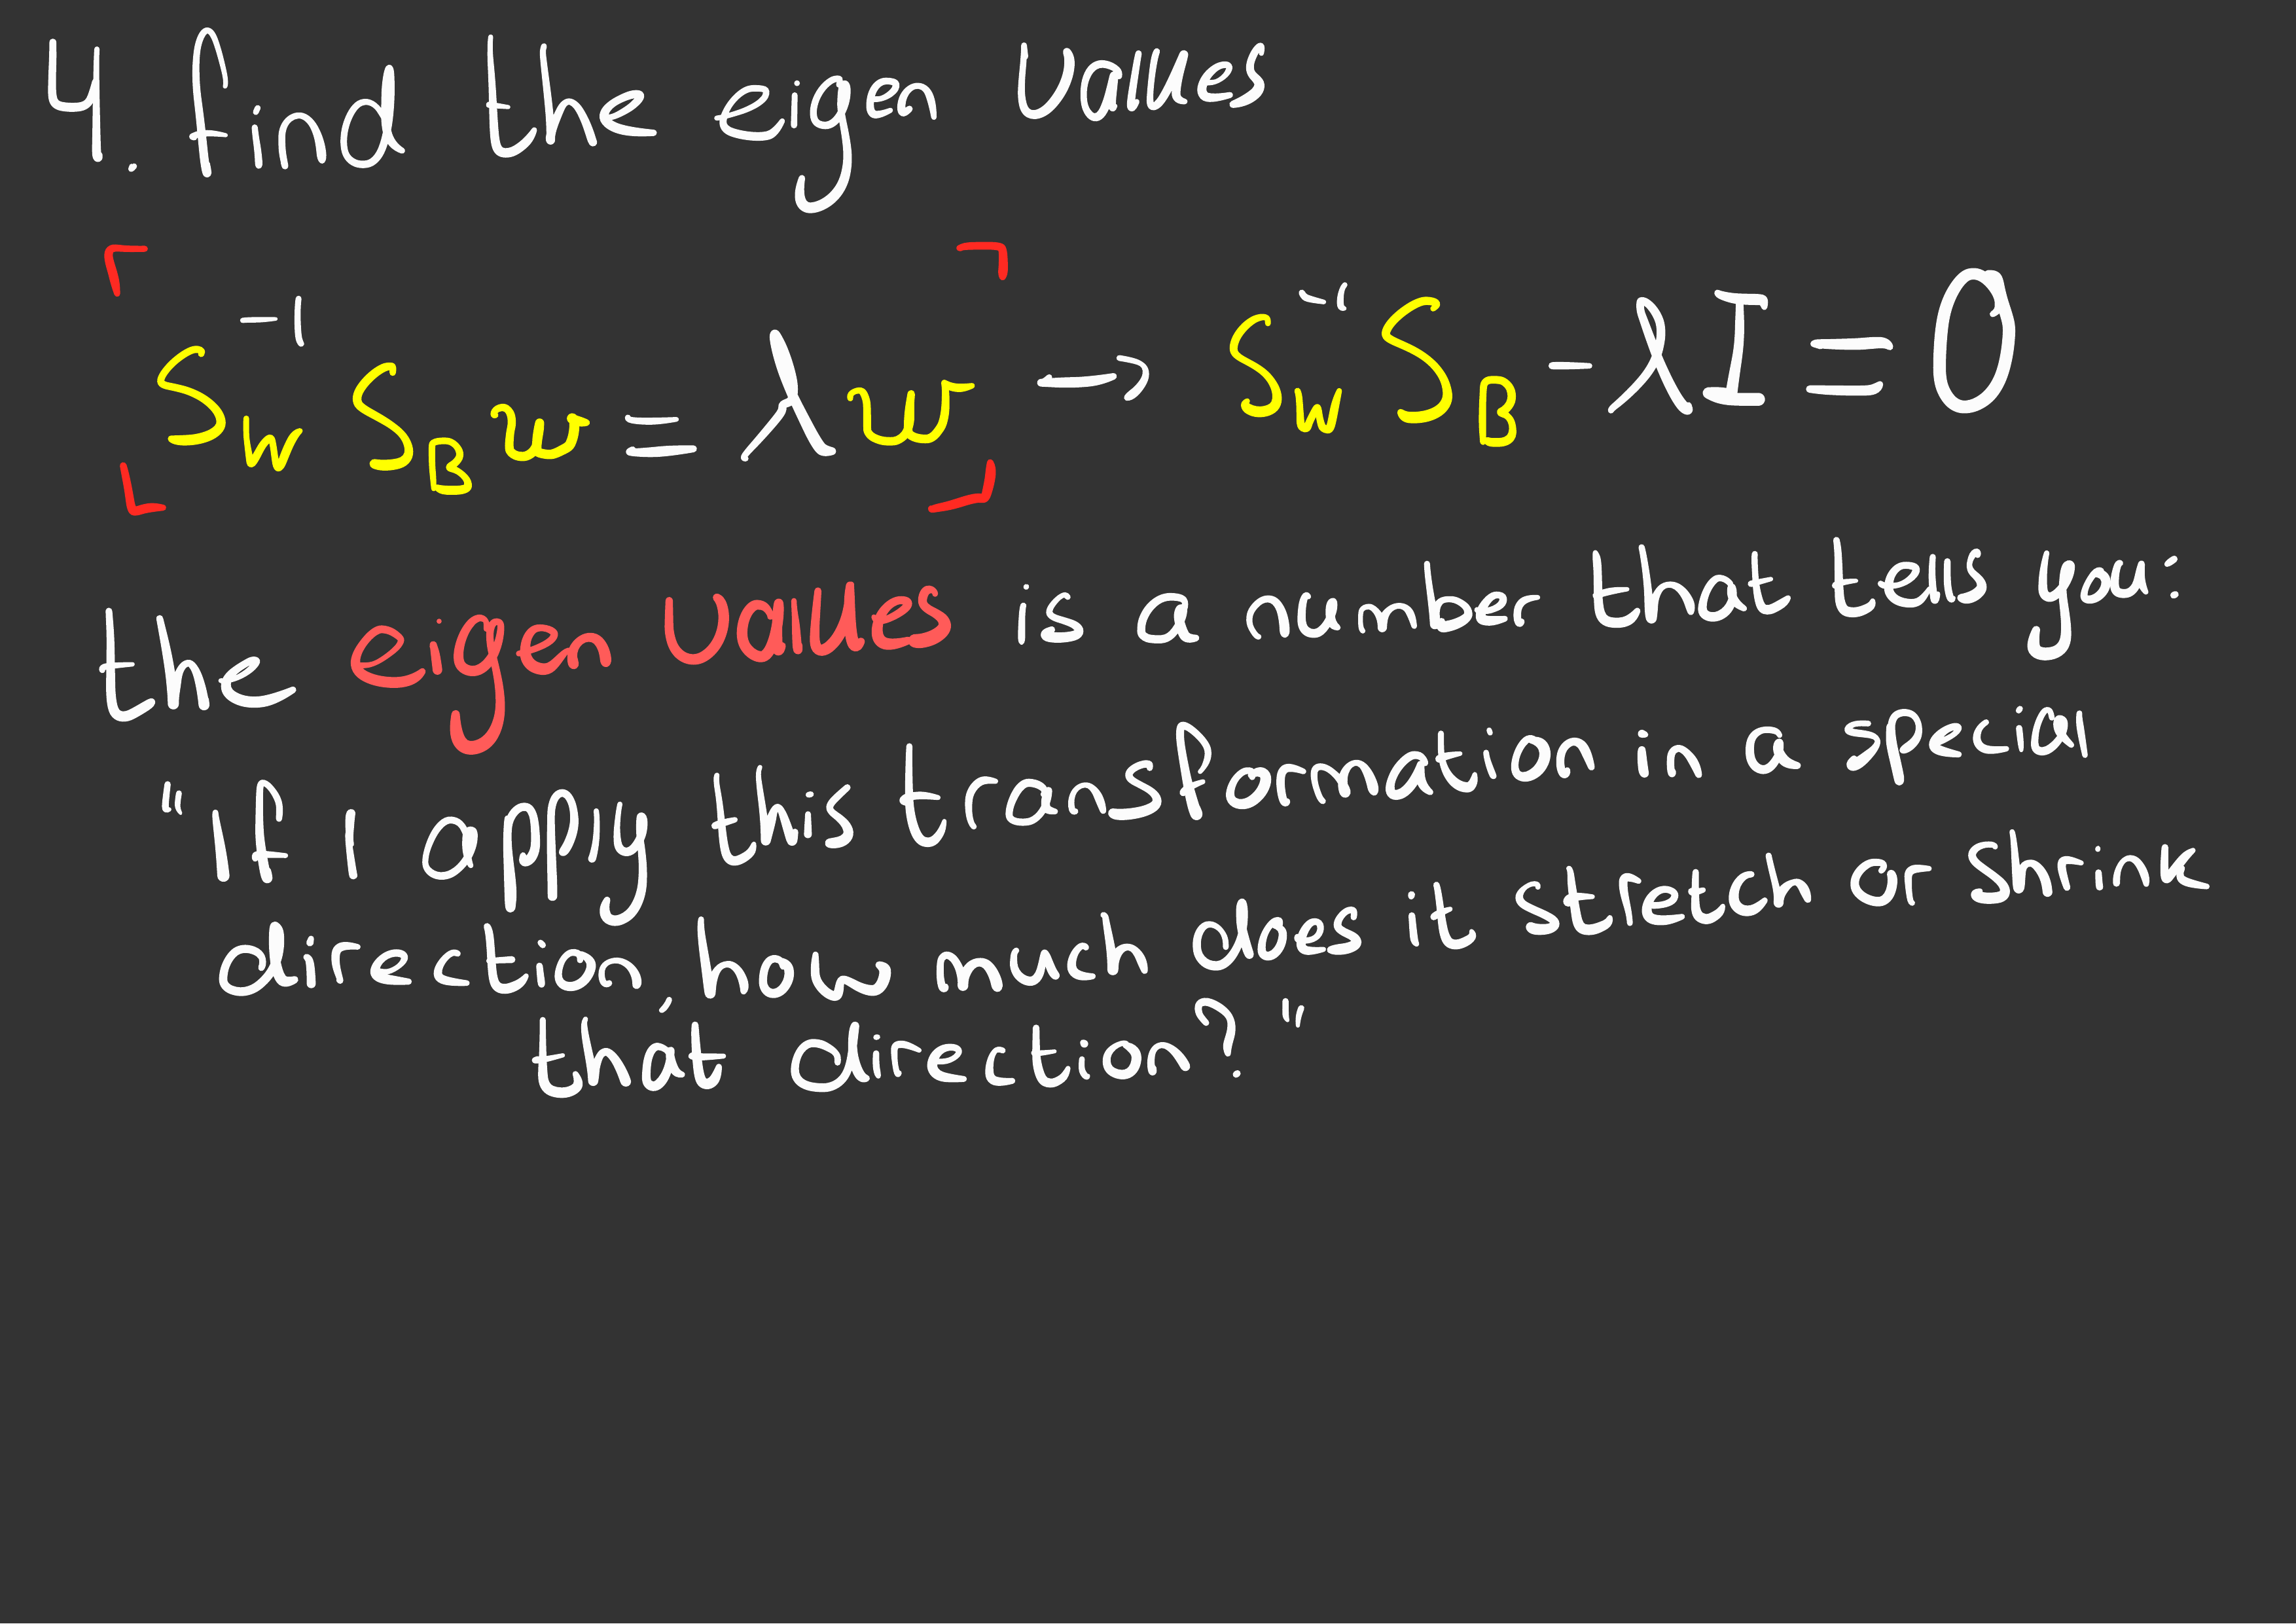 4. find the eigen values
S_W^{-1} S_B w = λ w → S_W^{-1} S_B - λI = 0
the eigen values is a number that tells you:
"If I apply this transformation in a special
direction, how much does it stretch or shrink
that direction?"